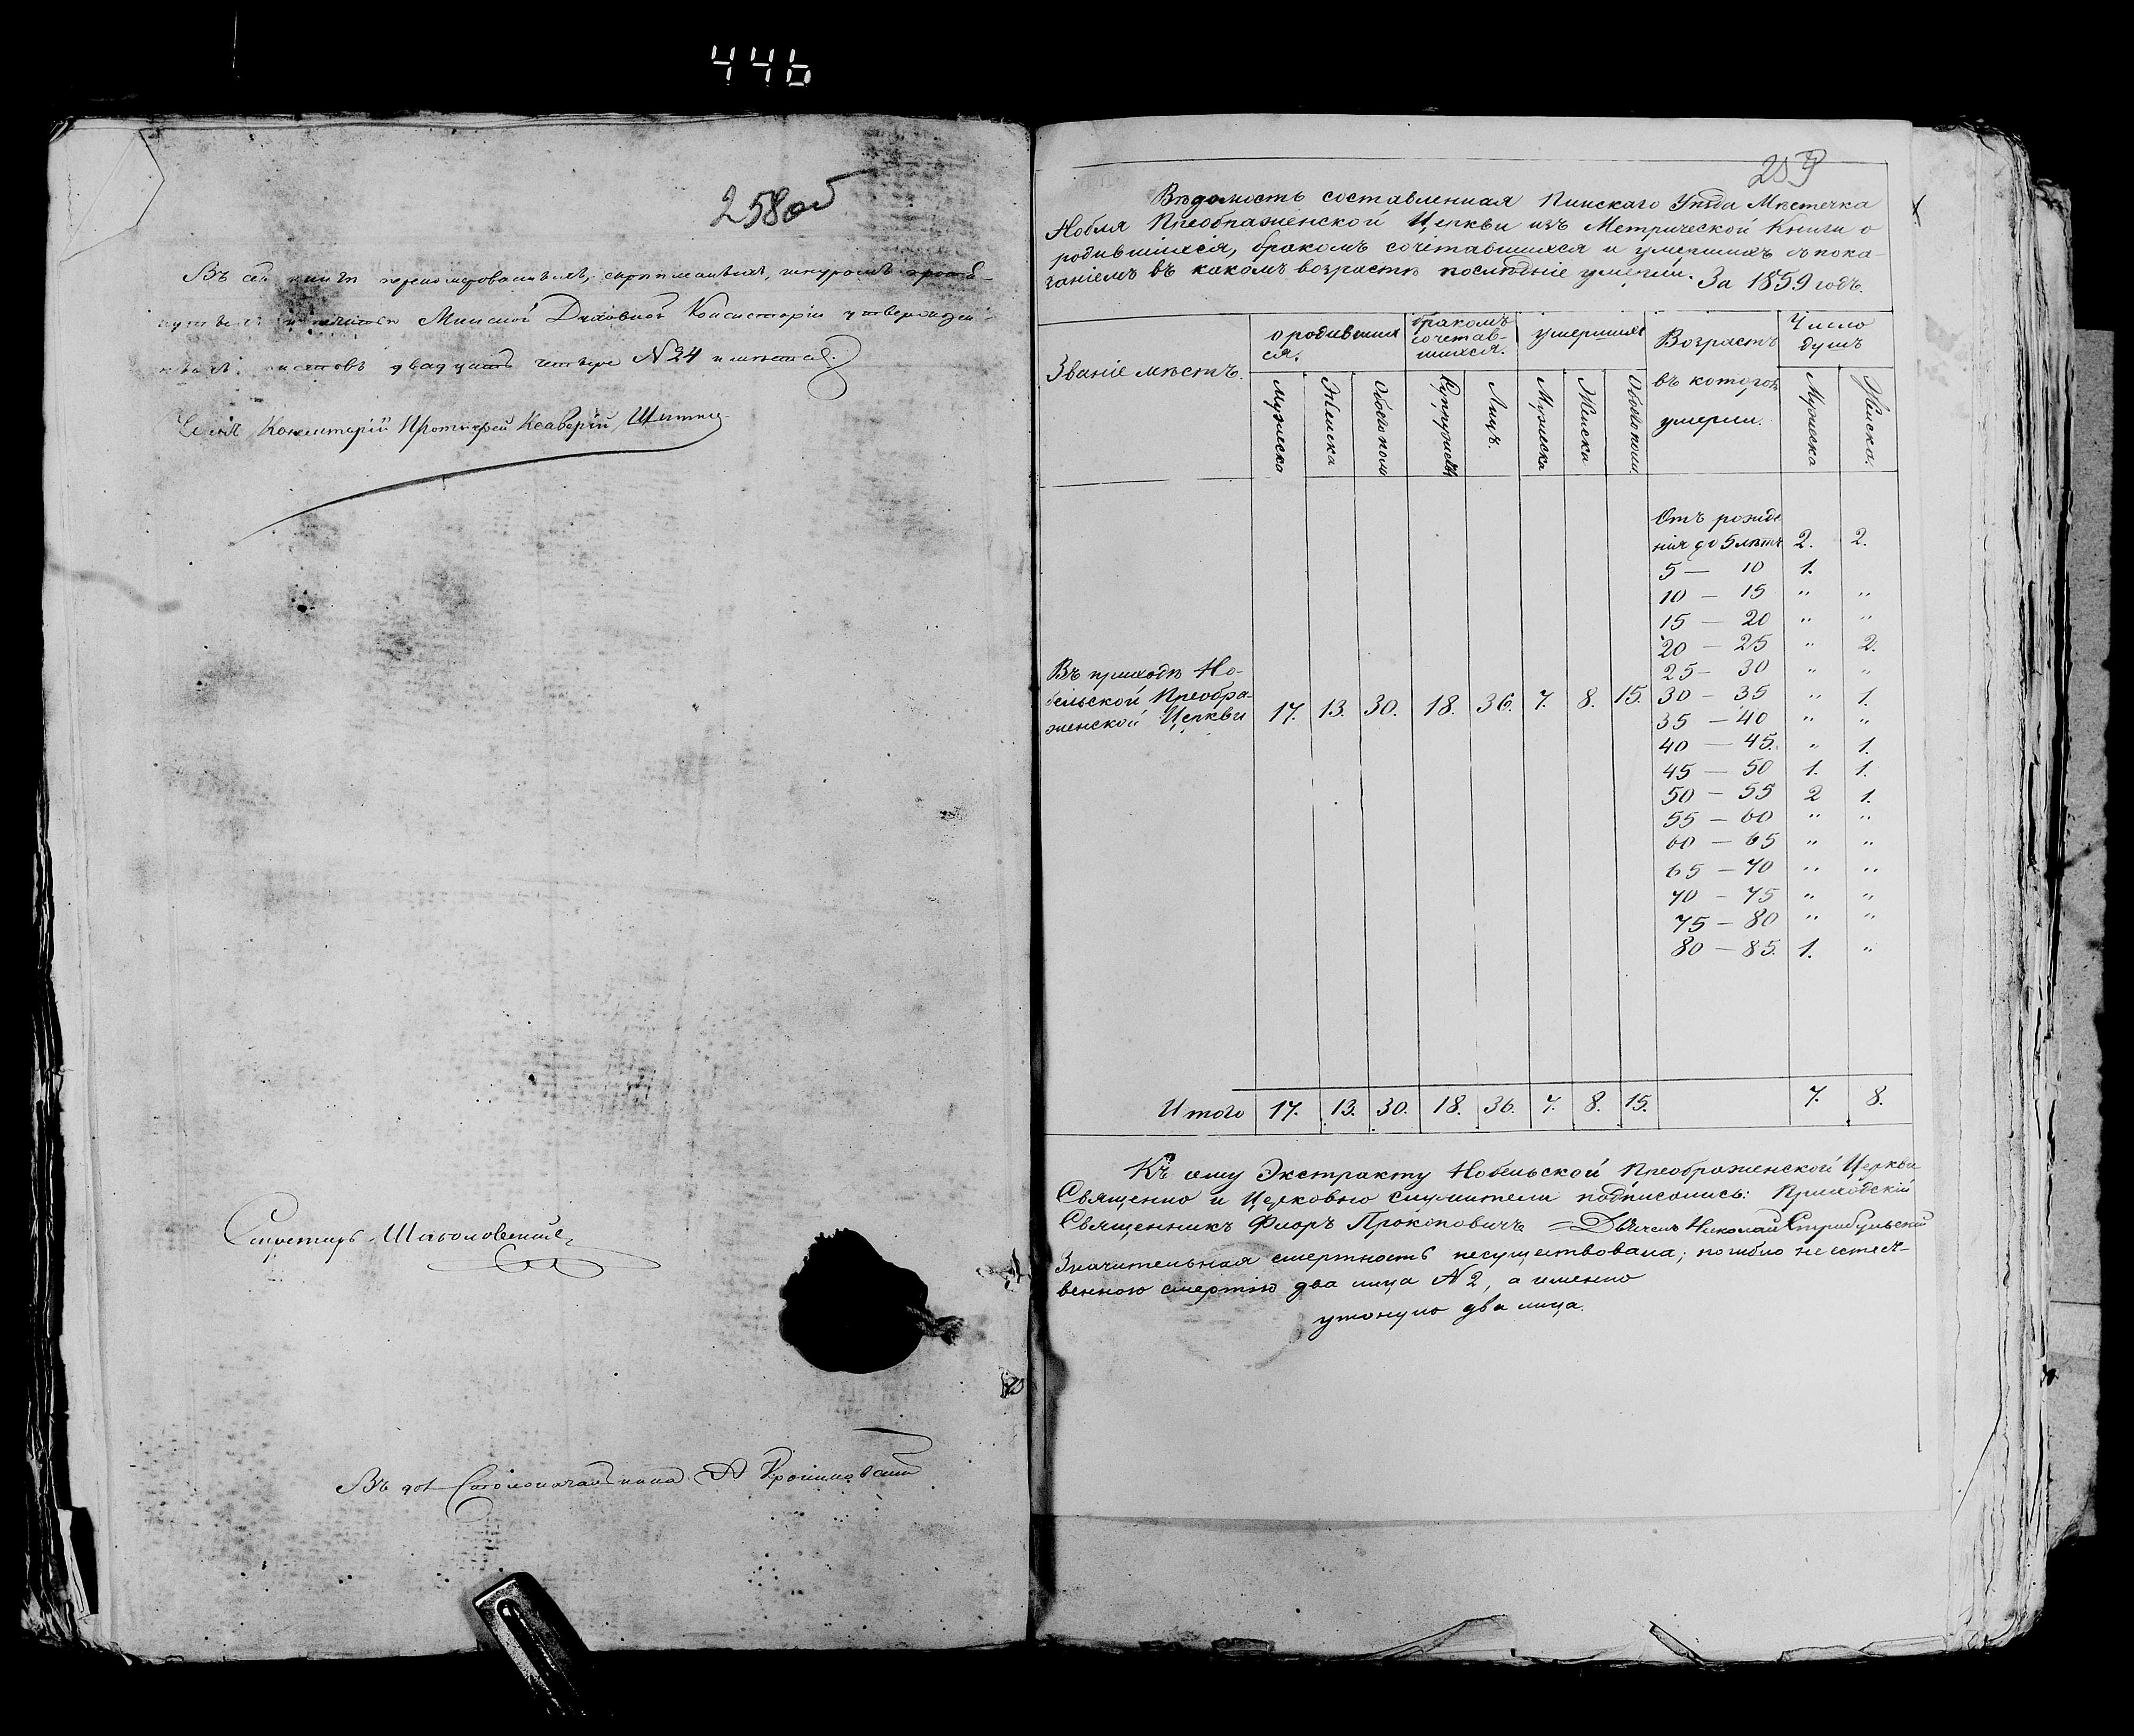 446
258об
Въ сей книгѣ перенумерованныхъ, скрепленныхъ, шнуромъ
Минской Духовной Консисторіи утвержден-
листовъ двадцать четыре N 24 имѣется.
Членъ Консисторіи Протоіерей
Секретарь
Въ дол Столоначальника
259
Вѣдомость составленная Пинскаго Уѣзда Мѣстечка
Нобля Преображенской Церкви изъ Метрической Книги о
родившихся, бракомъ сочетавшихся и умершихъ съ пока-
заніемъ въ какомъ возрастѣ послѣдніе умерли. За 1859 годъ.
Званіе мѣстъ. о родившихся. бракомъ сочетав-шихся. умершихъ Возрастъ въ которомъ умерли. Число душъ
Мужеска Женска Обоего пола Супружествъ Лицъ. Мужеска Женска Обоего пола Мужеска Женска.
Отъ рожде
нія до 5 лѣтъ 2. 2.
5 — 10 1.
10 — 15 " "
15 — 20 " "
20 — 25 " 2.
25 — 30 " "
Въ приходѣ Но-
бельской Преобра-
женской Церкви 17. 13. 30. 18. 36. 7. 8. 15.
30 — 35 " 1.
35 — 40 " "
40 — 45. " 1.
45 — 50 1. 1.
50 — 55 2 1.
55 — 60 " "
60 — 65 " "
65 — 70 " "
70 — 75 " "
75 — 80 " "
80 — 85. 1. "
Итого 17. 13. 30. 18. 36. 7. 8. 15. 7. 8.
Къ сему Экстракту Нобельской Преображенской Церкви
Священно и Церковно служители подписались: Приходскій
Священникъ Флоръ Прокоповичъ = Дьячекъ Николай
Значительная смертность несуществовала; погибло неестест-
венною смертію два лица N 2, а именно
утонуло два лица.